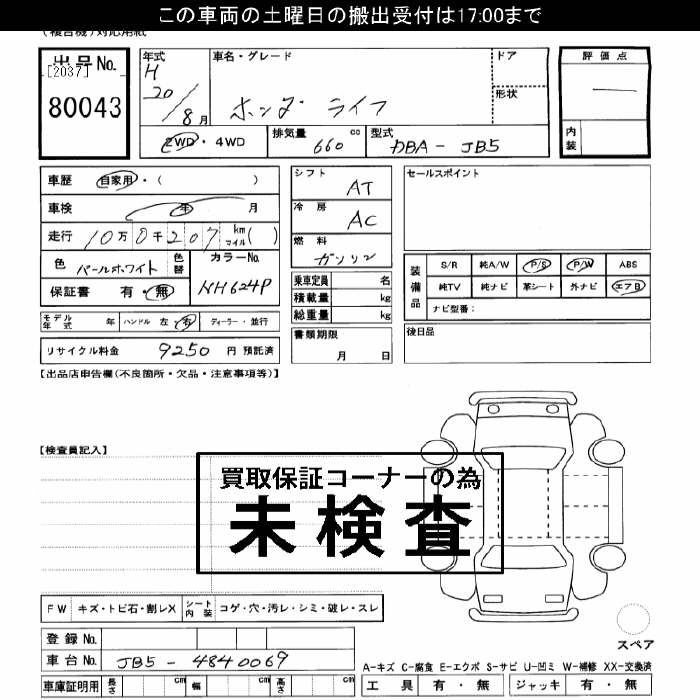 この車両の土曜日の搬出受付は17:00まで
(複合機)対応用紙
出品No.
[2037]
80043
年式
H
20/8月
車名・グレード
ホンダ ライフ
ドア
形状
評価点
—
内装
2WD・4WD
排気量 660 cc
型式 DBA-JB5
車歴 自家用・( )
車検 年 月
走行 10万0千207 km マイル( )
色 パールホワイト 色替
カラーNo.
NH624P
保証書 有・無
モデル年式 年 ハンドル 左 右 ディーラー・並行
リサイクル料金 9250 円 預託済
シフト AT
冷房 AC
燃料 ガソリン
乗車定員 名
積載量 kg
総重量 kg
書類期限
月 日
セールスポイント
装備品
S/R 純A/W P/S P/W ABS
純TV 純ナビ 革シート 外ナビ エアB
ナビ型番:
後日品
【出品店申告欄(不良箇所・欠品・注意事項等)】
【検査員記入】
買取保証コーナーの為
未検査
FW キズ・トビ石・割レX シート内装 コゲ・穴・汚レ・シミ・破レ・スレ
登録No.
車台No. JB5-4840069
車庫証明用 長さ cm 幅 cm 高さ cm
スペア
A-キズ C-腐食 E-エクボ S-サビ U-凹ミ W-補修 XX-交換済
工具 有・無 ジャッキ 有・無